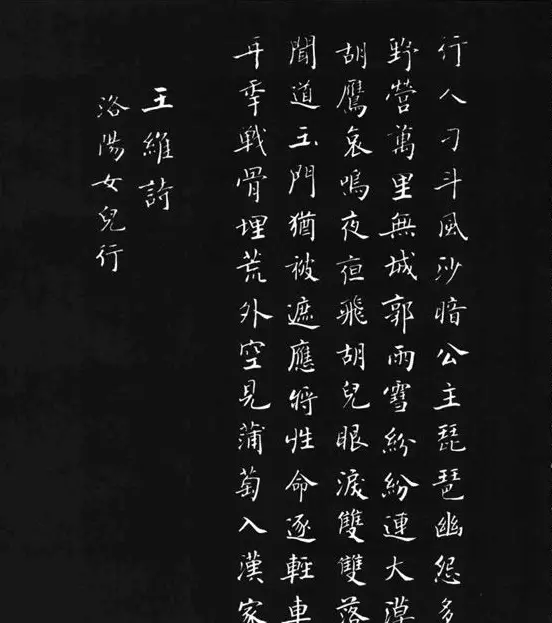 行人刁斗風沙暗公主琵琶幽怨多
野營萬里無城郭雨雪紛紛連大漠
胡鷹哀鳴夜夜飛胡兒眼淚雙雙落
聞道玉門猶被遮應將性命逐輕車
年季戰骨埋荒外空見蒲萄入漢家
王維詩
洛陽女兒行